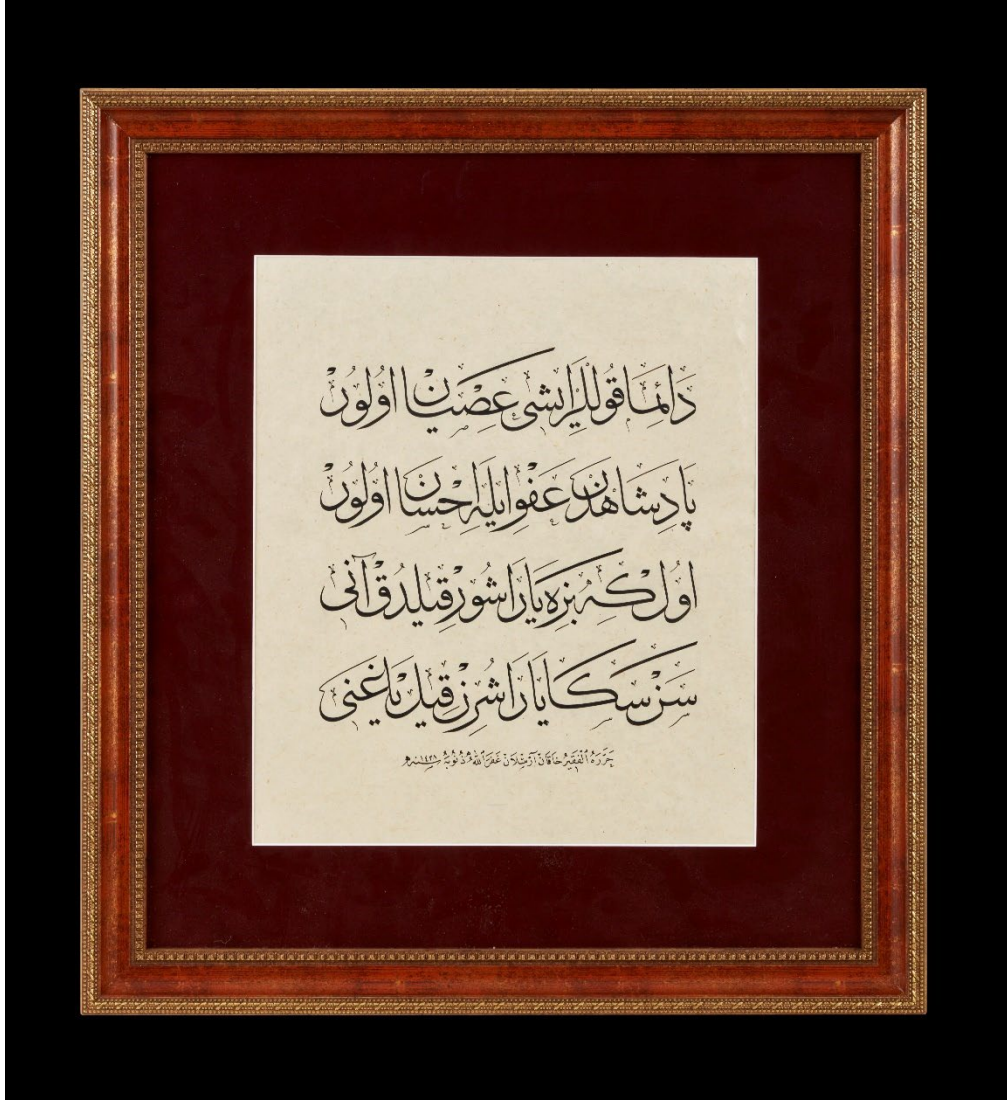 دائما قوللر ایشی عصیان اولور
پادشاهدن عفو ایله احسان اولور
اول که بزه یاراشور قیلدق آنی
سن سكا یاراشرز قیل یا غنی
حرره الفقیر خاقان آرسلان غفر الله ذنوبه سنه ١٤٣١